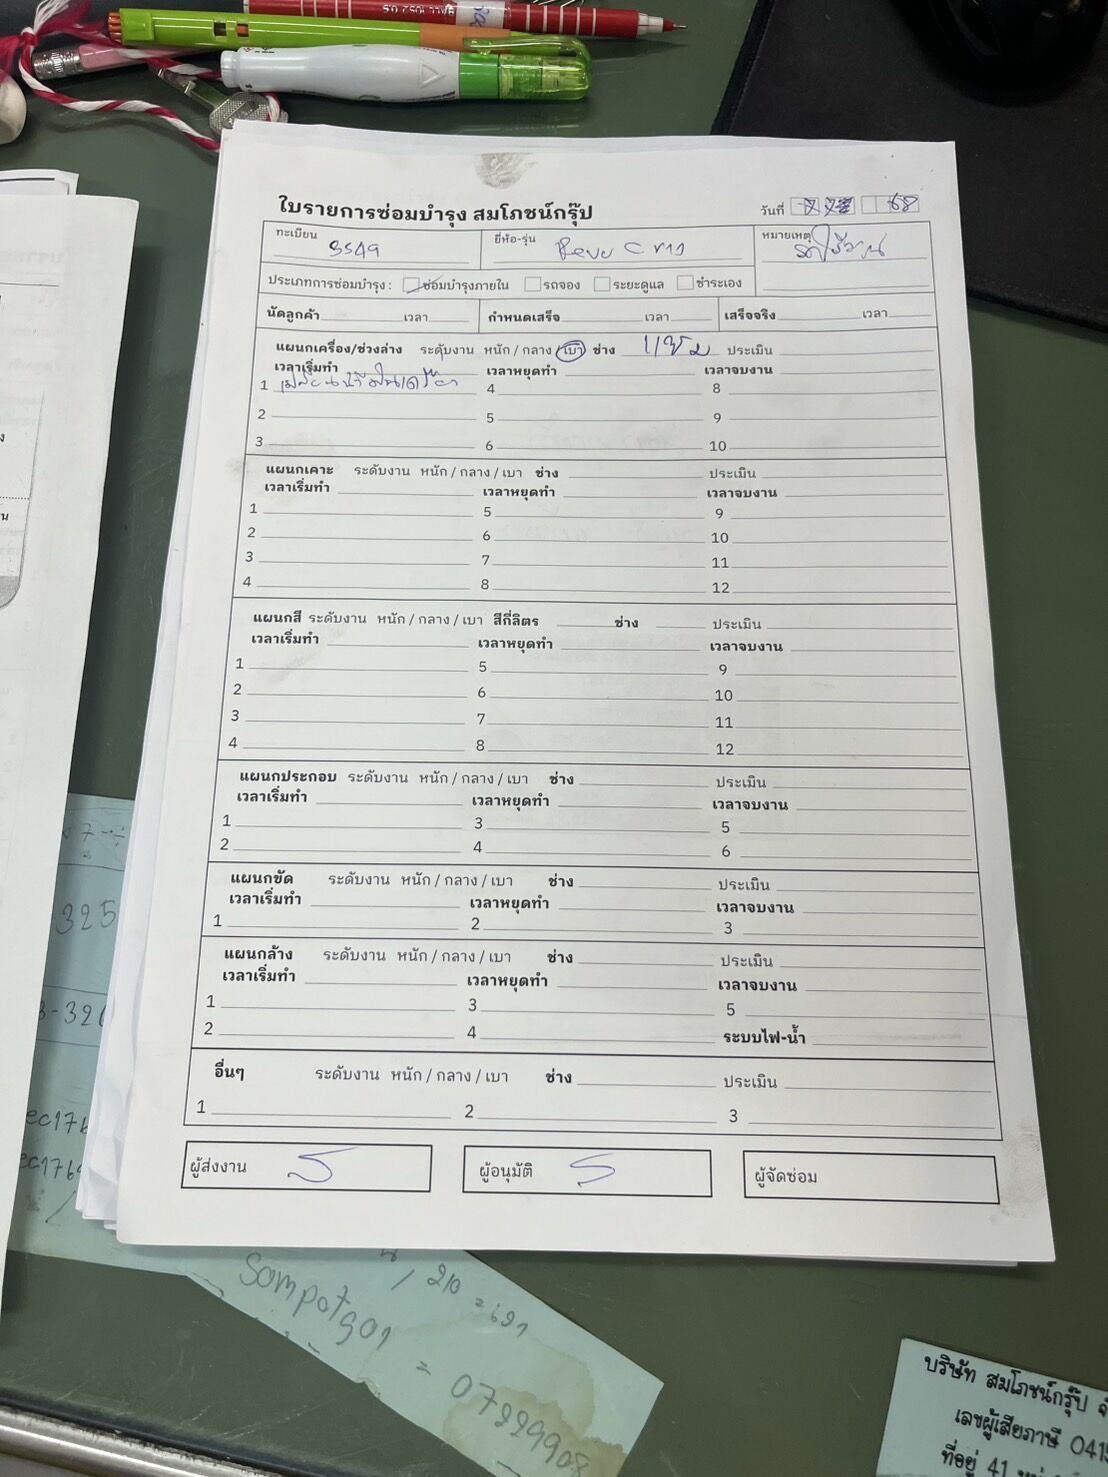 ใบรายการซ่อมบำรุง สมโภชน์กรุ๊ป
วันที่ 68
ทะเบียน ยี่ห้อ-รุ่น หมายเหตุ
3549 Revo
ประเภทการซ่อมบำรุง : ซ่อมบำรุงภายใน รถจอง ระยะดูแล ชำระเอง
นัดลูกค้า เวลา กำหนดเสร็จ เวลา เสร็จจริง เวลา
แผนกเครื่อง/ช่วงล่าง ระดับงาน หนัก / กลาง / เบา ช่าง ประเมิน
เวลาเริ่มทำ เวลาหยุดทำ เวลาจบงาน
1 4 8
2 5 9
3 6 10
แผนกเคาะ ระดับงาน หนัก / กลาง / เบา ช่าง ประเมิน
เวลาเริ่มทำ เวลาหยุดทำ เวลาจบงาน
1 5 9
2 6 10
3 7 11
4 8 12
แผนกสี ระดับงาน หนัก / กลาง / เบา สีกี่ลิตร ช่าง ประเมิน
เวลาเริ่มทำ เวลาหยุดทำ เวลาจบงาน
1 5 9
2 6 10
3 7 11
4 8 12
แผนกประกอบ ระดับงาน หนัก / กลาง / เบา ช่าง ประเมิน
เวลาเริ่มทำ เวลาหยุดทำ เวลาจบงาน
1 3 5
2 4 6
แผนกขัด ระดับงาน หนัก / กลาง / เบา ช่าง ประเมิน
เวลาเริ่มทำ เวลาหยุดทำ เวลาจบงาน
1 2 3
แผนกล้าง ระดับงาน หนัก / กลาง / เบา ช่าง ประเมิน
เวลาเริ่มทำ เวลาหยุดทำ เวลาจบงาน
1 3 5
2 4 ระบบไฟ-น้ำ
อื่นๆ ระดับงาน หนัก / กลาง / เบา ช่าง ประเมิน
1 2 3
ผู้ส่งงาน ผู้อนุมัติ ผู้จัดซ่อม
325
ec176
ec176
210 = 691
= 07229908
บริษัท สมโภชน์กรุ๊ป
เลขผู้เสียภาษี 041
ที่อยู่ 41